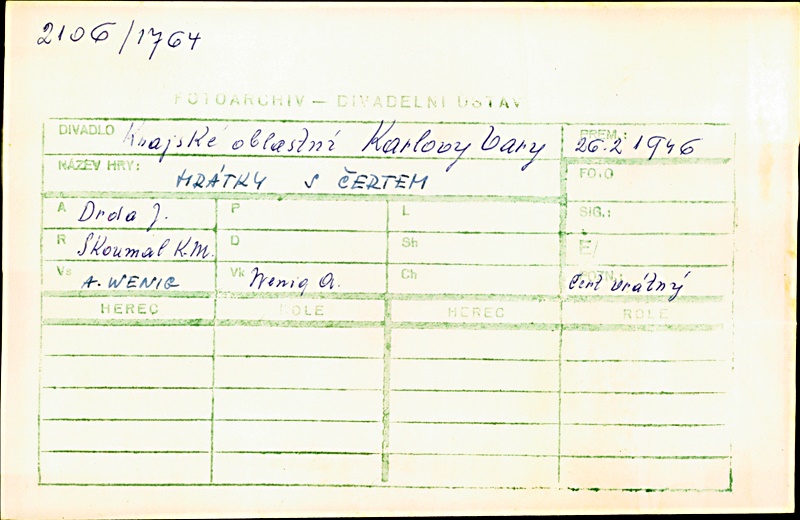 2106/1764
FOTOARCHIV – DIVADELNÍ ÚSTAV
DIVADLO Krajské oblastní Karlovy Vary PREM.: 26.2 1946
NÁZEV HRY: HRÁTKY S ČERTEM FOTO
A Drda J. P L SIG.:
R Skoumal K.M. D Sh E/
Vs A. WENIG Vk Wenig A. Ch POZN.: čert vrátný
HEREC ROLE HEREC ROLE